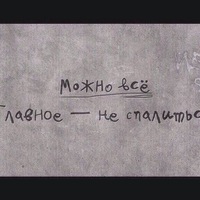 Можно всё
Главное — не спалитьс